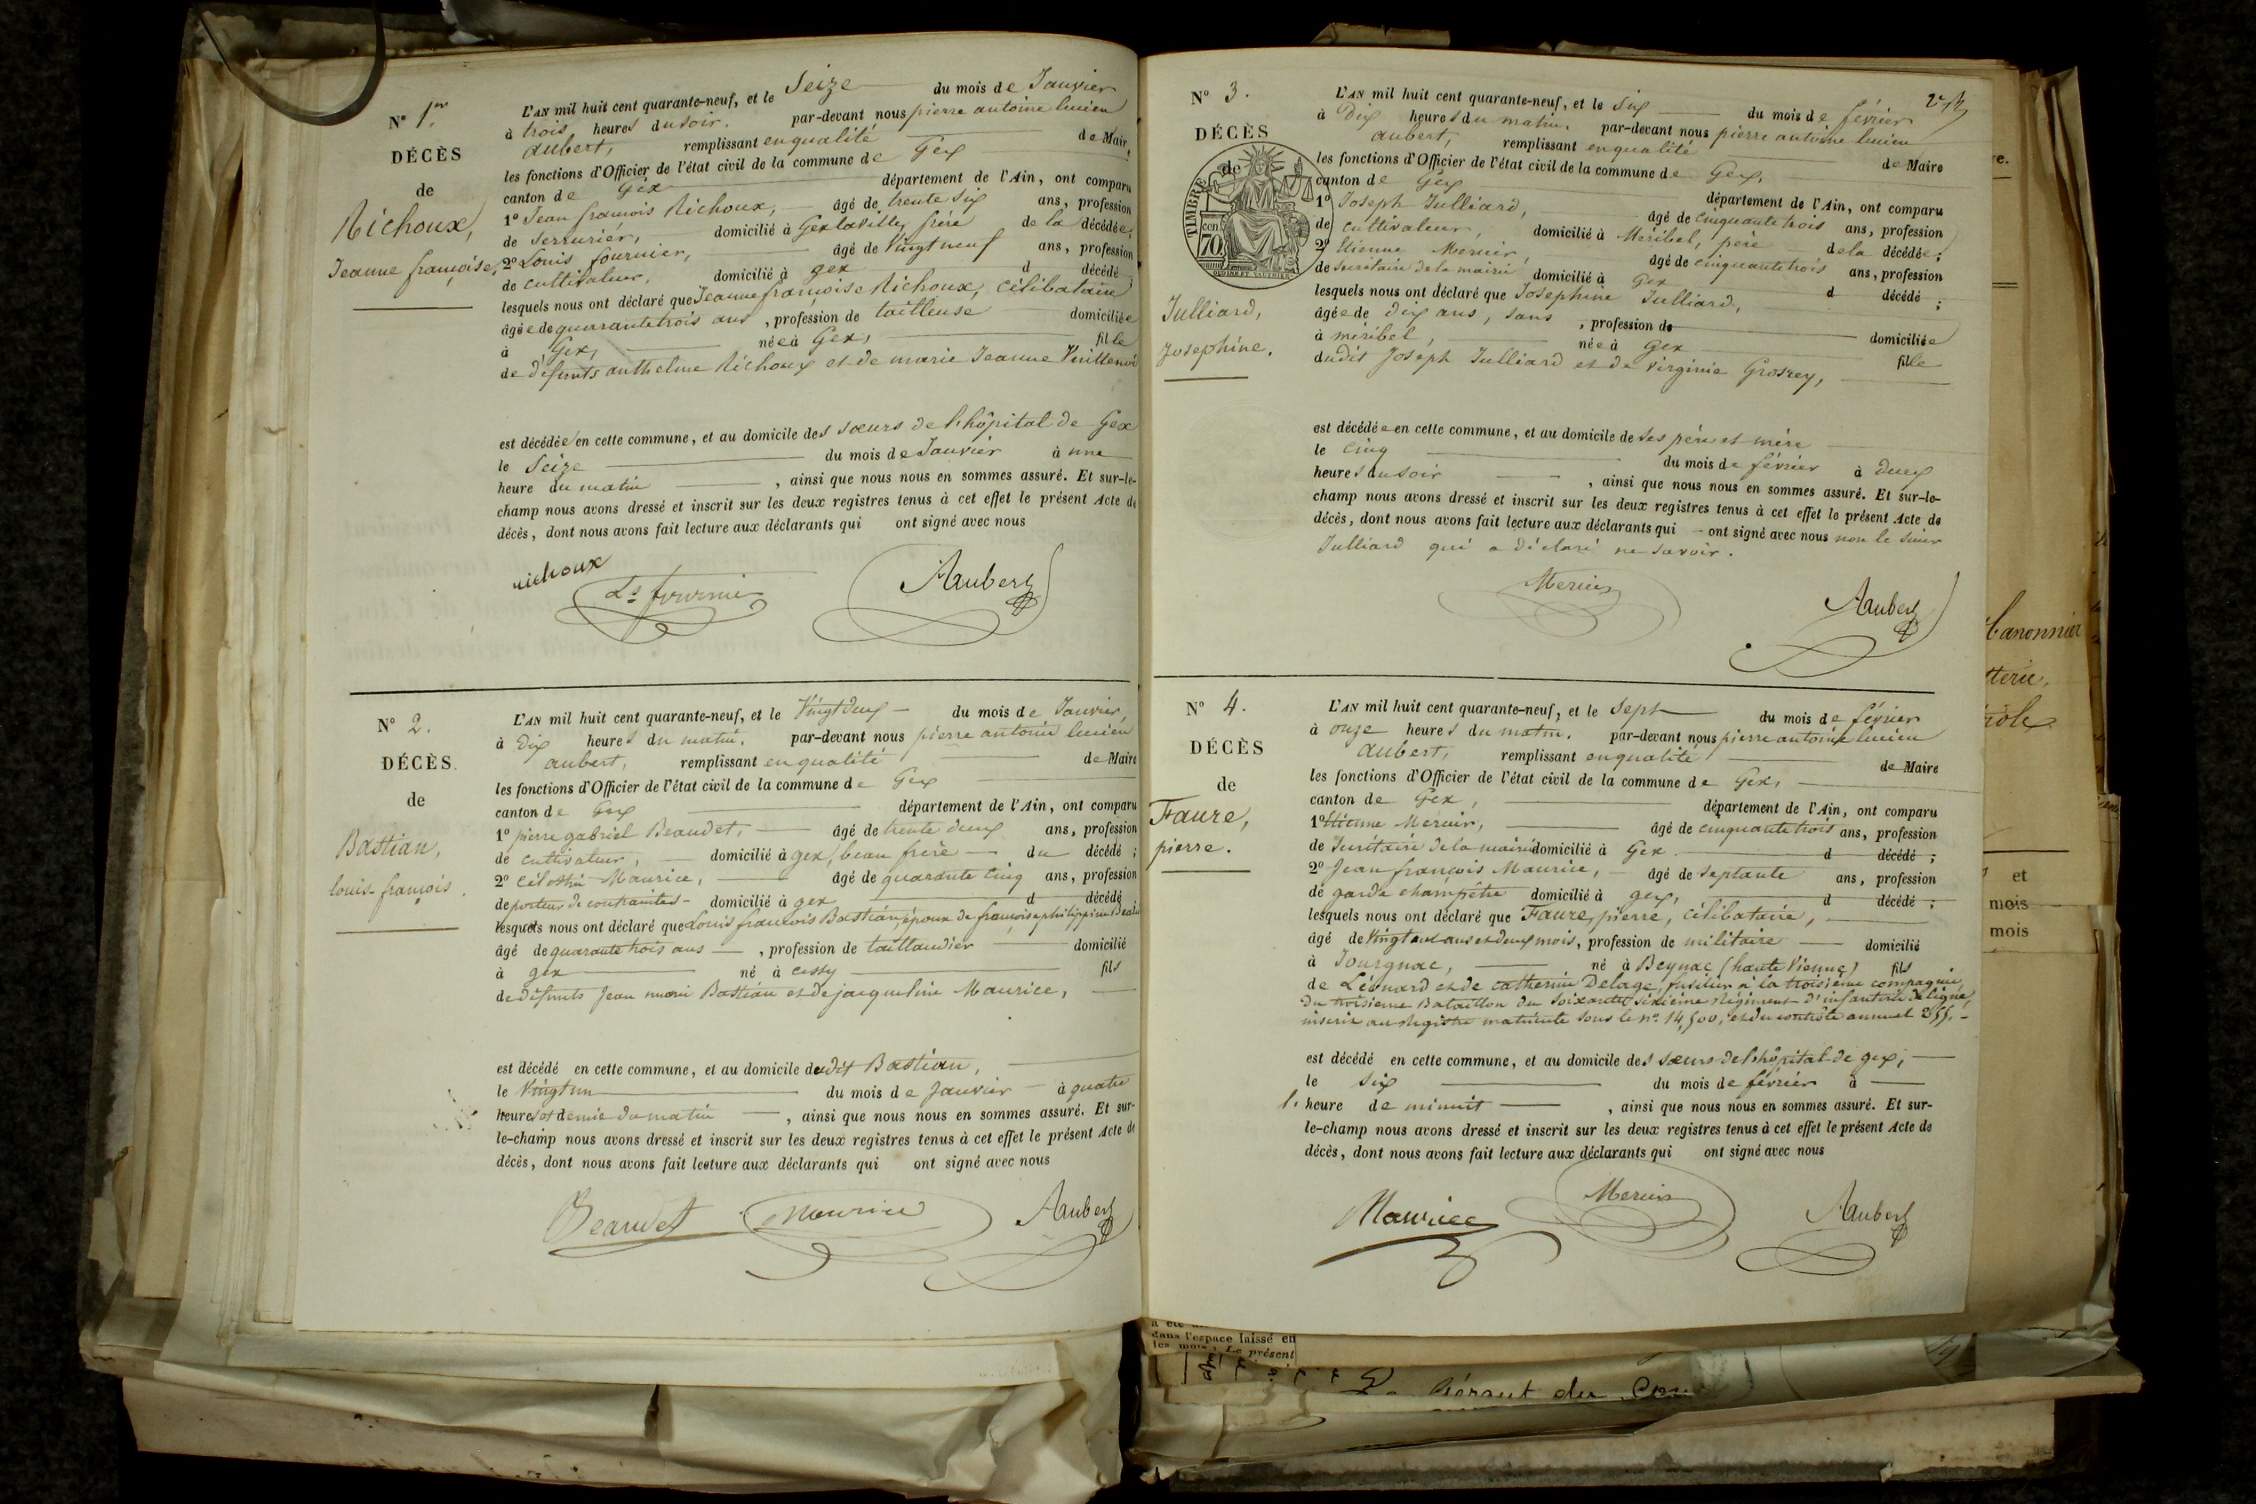 N° 1er
DÉCÈS
de
Richoux,
Jeanne françoise,
L'AN mil huit cent quarante-neuf, et le Seize du mois de Janvier
à trois heures du soir. par-devant nous pierre antoine lucien
aubert, remplissant en qualité de Maire,
les fonctions d'Officier de l'état civil de la commune de Gex
canton de Gex département de l'Ain, ont comparu
1° Jean françois Richoux, âgé de trente six ans, profession
de Serrurier, domicilié à Gex la Ville, frère de la décédée;
2° Louis fournier, âgé de Vingt neuf ans, profession
de cultivateur, domicilié à gex d décédé
lesquels nous ont déclaré que Jeanne françoise Richoux, célibataire
âgée de quarante trois ans, profession de tailleuse domiciliée
à Gex, née à Gex, fille
de défunts anthelme Richoux et de marie Jeanne
est décédée en cette commune, et au domicile des sœurs de l'hôpital de Gex
le Seize du mois de Janvier à une
heure du matin, ainsi que nous nous en sommes assuré. Et sur-le-
champ nous avons dressé et inscrit sur les deux registres tenus à cet effet le présent Acte de
décès, dont nous avons fait lecture aux déclarants qui ont signé avec nous
richoux
Ls fournier
Aubert
N° 2.
DÉCÈS
de
Bastian,
louis-françois.
L'AN mil huit cent quarante-neuf, et le Vingt deux du mois de Janvier,
à Dix heures du matin. par-devant nous pierre antoine lucien
aubert, remplissant en qualité de Maire
les fonctions d'Officier de l'état civil de la commune de Gex
canton de Gex département de l'Ain, ont comparu
1° pierre gabriel Beaudet, âgé de trente deux ans, profession
de cultivateur, domicilié à gex, beau frère du décédé;
2° Célestin Maurice, âgé de quarante cinq ans, profession
de porteur de contraintes domicilié à gex d décédé
lesquels nous ont déclaré que Louis françois Bastian, époux de françoise philippine
âgé de quarante trois ans, profession de taillandier domicilié
à gex né à cessy fils
de défunts Jean marie Bastian et de jacqueline Maurice,
est décédé en cette commune, et au domicile dudit Bastian,
le Vingt un du mois de Janvier à quatre
heures et demie du matin, ainsi que nous nous en sommes assuré. Et sur-
le-champ nous avons dressé et inscrit sur les deux registres tenus à cet effet le présent Acte de
décès, dont nous avons fait lecture aux déclarants qui ont signé avec nous
Beaudet
Maurice
Aubert
N° 3.
DÉCÈS
de
TIMBRE
70
Julliard,
Josephine.
L'AN mil huit cent quarante-neuf, et le six du mois de février
à Dix heures du matin. par-devant nous pierre antoine lucien
aubert, remplissant en qualité de Maire
les fonctions d'Officier de l'état civil de la commune de Gex,
canton de Gex département de l'Ain, ont comparu
1° Joseph Julliard, âgé de cinquante trois ans, profession
de cultivateur, domicilié à Méribel, père de la décédée;
2° Etienne Mercier, âgé de cinquante trois ans, profession
de Secrétaire de la mairie domicilié à Gex d décédé;
lesquels nous ont déclaré que Josephine Julliard,
âgée de dix ans, sans, profession de domiciliée
à méribel, née à Gex fille
dudit Joseph Julliard et de Virginie Grosrey,
est décédée en cette commune, et au domicile de ses père et mère
le cinq du mois de février à deux
heures du soir, ainsi que nous nous en sommes assuré. Et sur-le-
champ nous avons dressé et inscrit sur les deux registres tenus à cet effet le présent Acte de
décès, dont nous avons fait lecture aux déclarants qui ont signé avec nous non le sieur
Julliard qui a déclaré ne savoir.
Mercier
Aubert
N° 4.
DÉCÈS
de
Faure,
pierre.
L'AN mil huit cent quarante-neuf, et le sept du mois de février
à onze heures du matin. par-devant nous pierre antoine lucien
aubert, remplissant en qualité de Maire
les fonctions d'Officier de l'état civil de la commune de Gex,
canton de Gex, département de l'Ain, ont comparu
1° Etienne Mercier, âgé de cinquante trois ans, profession
de Secrétaire de la mairie domicilié à Gex d décédé;
2° Jean françois Maurice, âgé de septante ans, profession
de garde champêtre domicilié à gex, d décédé;
lesquels nous ont déclaré que Faure, pierre, célibataire,
âgé de ans et deux mois, profession de militaire domicilié
à Jourgnac, né à Beynac (haute Vienne) fils
de Léonard et de catherine Delage, fusilier à la troisième compagnie
du troisieme Bataillon du soixante sixième Régiment d'infanterie de ligne,
inscrit au Registre matricule sous le n° 14,500, et du contrôle annuel
est décédé en cette commune, et au domicile des sœurs de l'hôpital de gex,
le six du mois de février à
heure de minuit, ainsi que nous nous en sommes assuré. Et sur-
le-champ nous avons dressé et inscrit sur les deux registres tenus à cet effet le présent Acte de
décès, dont nous avons fait lecture aux déclarants qui ont signé avec nous
Maurice
Mercier
Aubert
re.
et
mois
mois
dans l'espace laissé en
les mots: Le présent
Gérant du